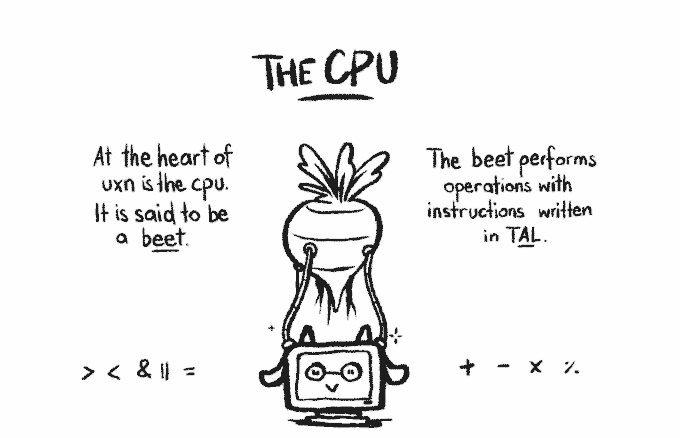 THE CPU
At the heart of
uxn is the cpu.
It is said to be
a beet.
The beet performs
operations with
instructions written
in TAL.
> < & || =
+ - × ٪.